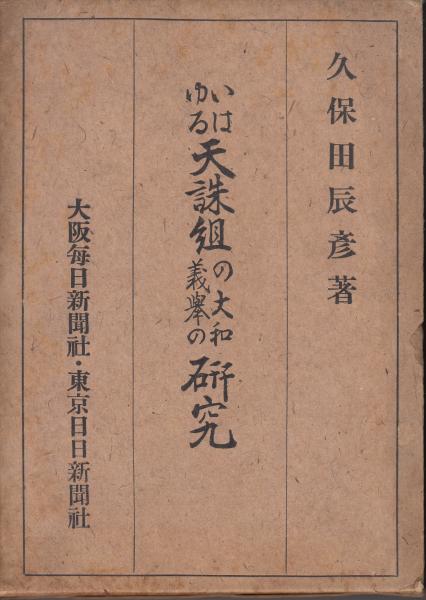 久保田辰彦著
いはゆる天誅組の大和義舉の研究
大阪毎日新聞社・東京日日新聞社